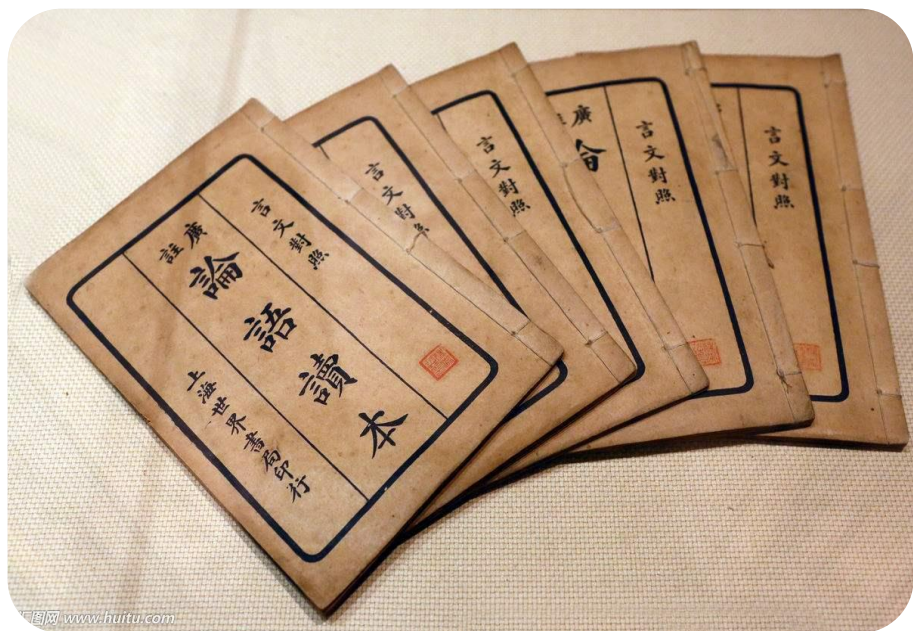 言文對照
廣註
論語讀本
上海世界書局印行
言文對照
言文對照
廣
言文對照
言文對照
汇图网 www.huitu.com